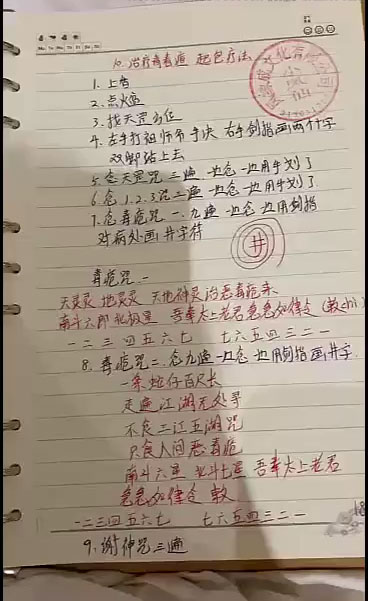 10. 治疗毒毒疱 起包疗法
1. 上香
2. 点火
3. 找天罡方位
4. 左手打祖师布手诀 右手剑指画两个井字
双脚站上去
5. 念天罡咒 三遍 一边念一边用手划了
6. 念1.2.3咒三遍 一边念一边用手划了
7. 念毒疱咒一、九遍 一边念一边用剑指
对病处画井字符
井
毒疱咒一
天灵灵 地灵灵 天地神灵治恶毒疱来
南斗六郎 北极星 吾奉太上老君急急如律令
一 二 三 四 五 六 七 七 六 五 四 三 二 一
8. 毒疱咒二、念九遍一边念一边用剑指画井字
一条 仔百尺长
走遍江湖无处寻
不食三江五湖
只食人间恶毒疱
南斗六星 北斗七星 吾奉太上老君
急急如律令 敕
一 二 三 四 五 六 七 七 六 五 四 三 二 一
9. 谢神咒三遍
18